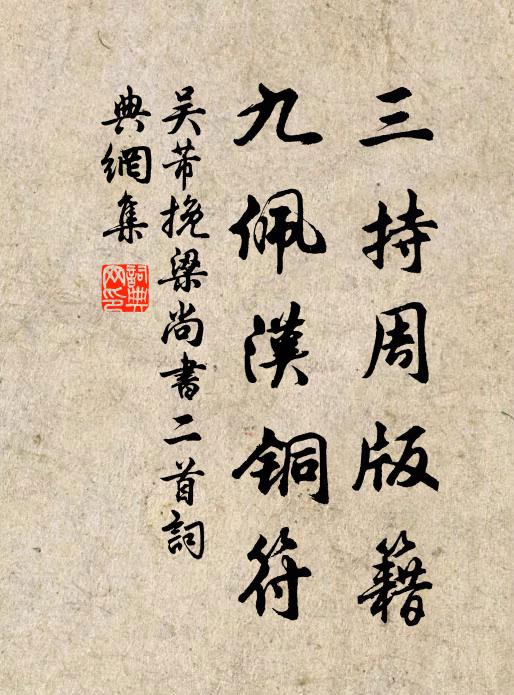 三持周版籍
九佩漢铜符
吴芾挽梁尚書二首詞
典網集
詞典網印